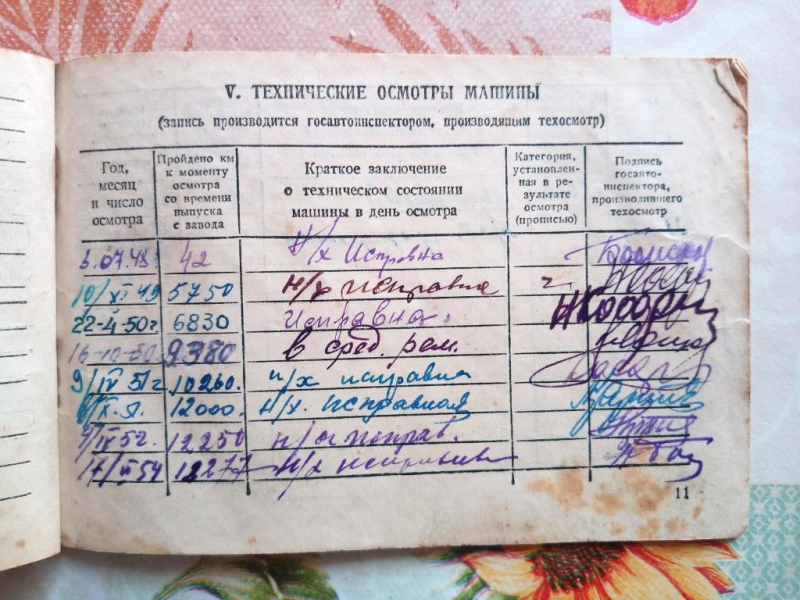 V. ТЕХНИЧЕСКИЕ ОСМОТРЫ МАШИНЫ
(запись производится госавтоинспектором, производящим техосмотр)
Год, месяц и число осмотра
Пройдено км к моменту осмотра со времени выпуска с завода
Краткое заключение о техническом состоянии машины в день осмотра
Категория, установленная в результате осмотра (прописью)
Подпись госавтоинспектора, производившего техосмотр
07.48 42 н/х Исправна
10/XI 49 5750 н/х исправна
22-4-50г. 6830 Исправна.
16-10-50 9380 в сред. рем.
9/IV 51г 10260. н/х исправна
/IX.51. 12000. н/х. исправная
/IX 52. 12250 н/х исправ.
17/VI 54 1227 н/х исправна
11